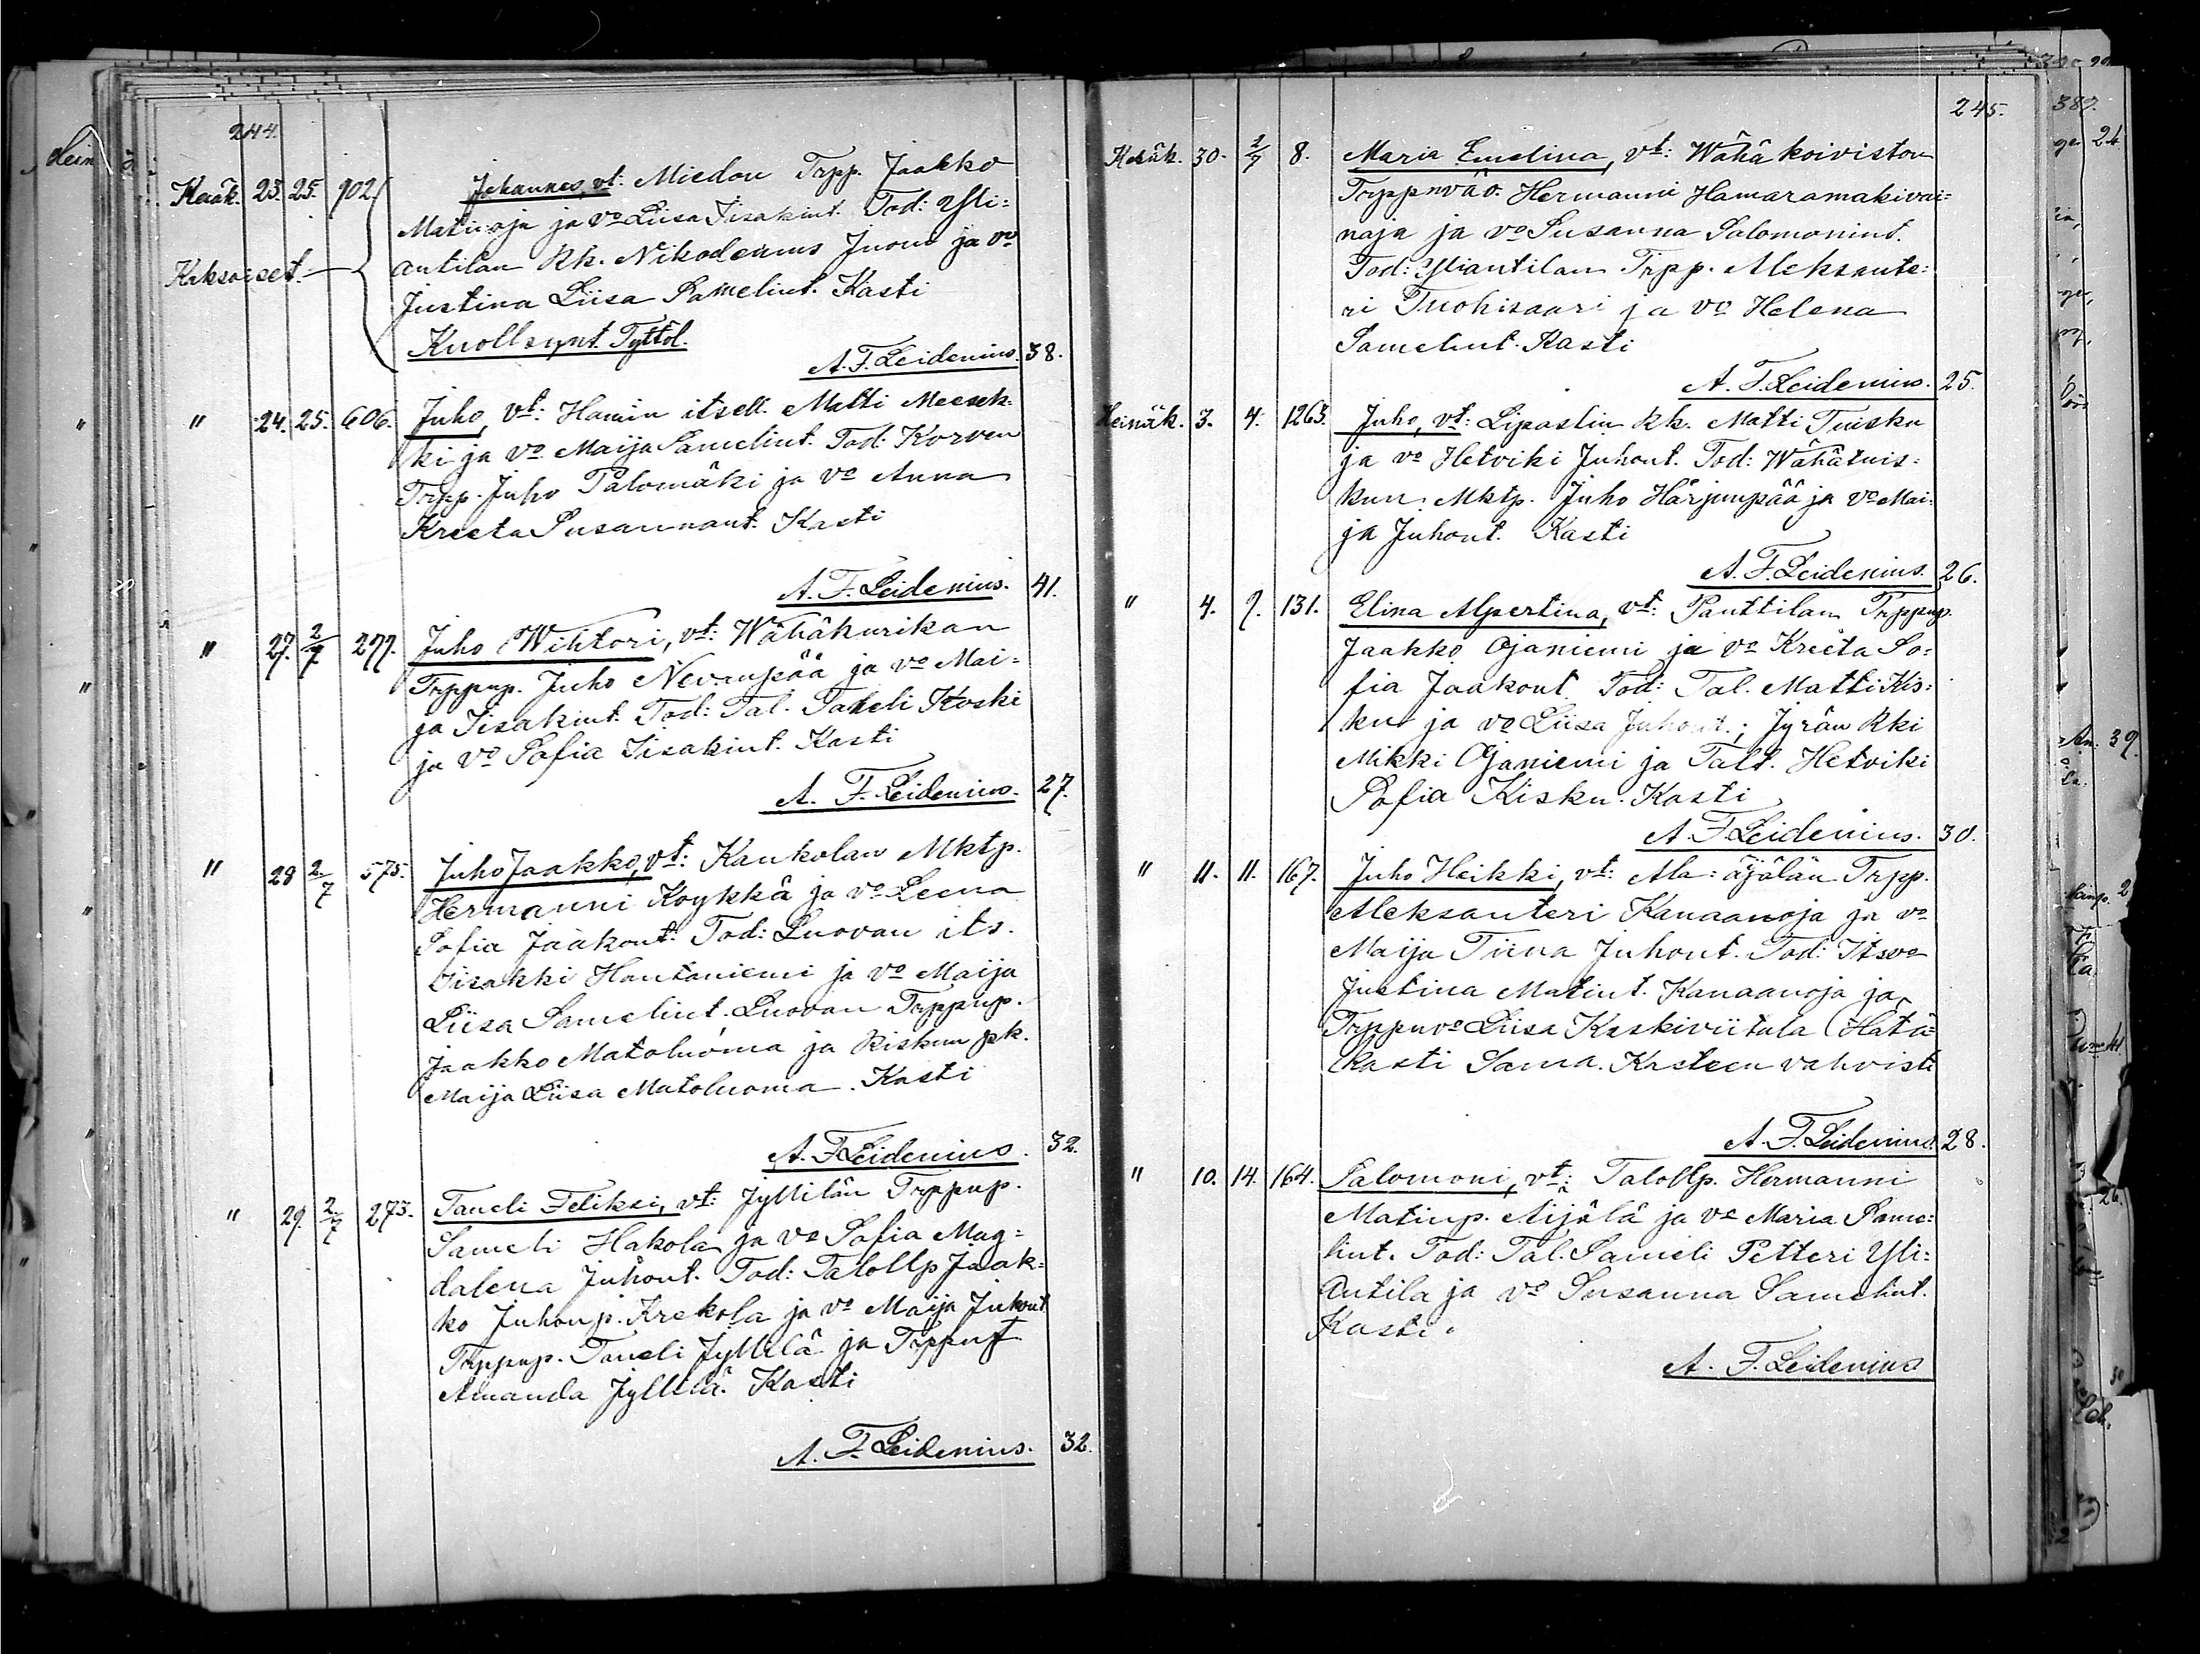 244.
Kesäk. 23. 25. 902. Johannes, vt: Miedon Trpp. Jaakko
Matinoja ja vo Liisa Iisakint. Tod: Yli=
Kaksoiset.
antilan Rk. Nikodemus Juoni ja vo
Justina Liisa Samelint. Kasti
Kuoll. synt. Tyttöl.
A. F. Leidenius. 38.
" 24. 25. 606. Juho, vt: Hannin itsell. Matti Meesek=
ki ja vo. Maija Samelint. Tod: Korven
Trpp. Juho Palomäki ja vo Anna
Kreeta Susannant. Kasti
A. F. Leidenius. 41.
" 27. 2/7 277. Juho Wihtori, vt: Wähäkurikan
Trppnp. Juho Nevanpää ja vo Mai=
ja Iisakint. Tod: Tal. Taneli Koski
ja vo Sofia Iisakint. Kasti
A. F. Leidenius. 27.
" 28 2/7 575. Juho Jaakko, vt: Kankolan Mktp.
Hermanni Köykkä ja vo Leena
Sofia Jaakont. Tod: Luovan its.
Iisakki Hautaniemi ja vo Maija
Liisa Samelint. Luovan Trppnp.
Jaakko Matoluoma ja Kiskun pk.
Maija Liisa Matoluoma. Kasti
A. F. Leidenius. 32.
" 29. 2/7 273. Taneli Feliksi, vt: Jyllilän Trppnp.
Sameli Hakola ja vo Sofia Mag=
dalena Juhont. Tod: Talollp Jaak=
ko Juhonp. Krekola ja vo Maija Juhont
Trppnp. Taneli Jyllilä ja Trppnt
Amanda Jyllilä. Kasti
A. F. Leidenius. 32.
245.
Kesäk. 30. 2/7 8. Maria Emelina, vt: Wähä koiviston
Trppnväv. Hermanni Hamaramäkivai=
naja ja vo Susanna Salomonint.
Tod: Yliantilan Trpp. Aleksante=
ri Tuohisaari ja vo Helena
Samelint. Kasti
A. F. Leidenius. 25.
Heinäk. 3. 4. 1263. Juho, vt: Lipastin Rk. Matti Tuisku
ja vo Hetviki Juhont. Tod: Wähätuis=
kun Mktp. Juho Härjunpää ja vo Mai=
ja Juhont. Kasti
A. F. Leidenius. 26.
" 4. 7. 131. Elina Alpertina, vt: Panttilan Trppnp.
Jaakko Ojaniemi ja vo Kreeta So=
fia Jaakont. Tod: Tal. Matti Kis=
ku ja vo Liisa Juhont.; Jyrän Rki
Mikki Ojaniemi ja Talt. Hetviki
Sofia Kisku. Kasti
A. F. Leidenius. 30.
" 11. 11. 167. Juho Heikki, vt: Ala=äijälän Trpp.
Aleksanteri Kanaanoja ja vo
Maija Tiina Juhont. Tod: Itsvo
Justina Matint. Kanaanoja ja
Trppnvo Liisa Kaskiviitala (Hätä=
kasti Sama. Kasteen vahvisti
A. F. Leidenius. 28.
" 10. 14. 164. Salomoni, vt: Talollp. Hermanni
Matinp. Äijälä ja vo Maria Same=
lint. Tod: Tal. Sameli Petteri Yli=
antila ja vo Susanna Samelint.
Kasti.
A. F. Leidenius